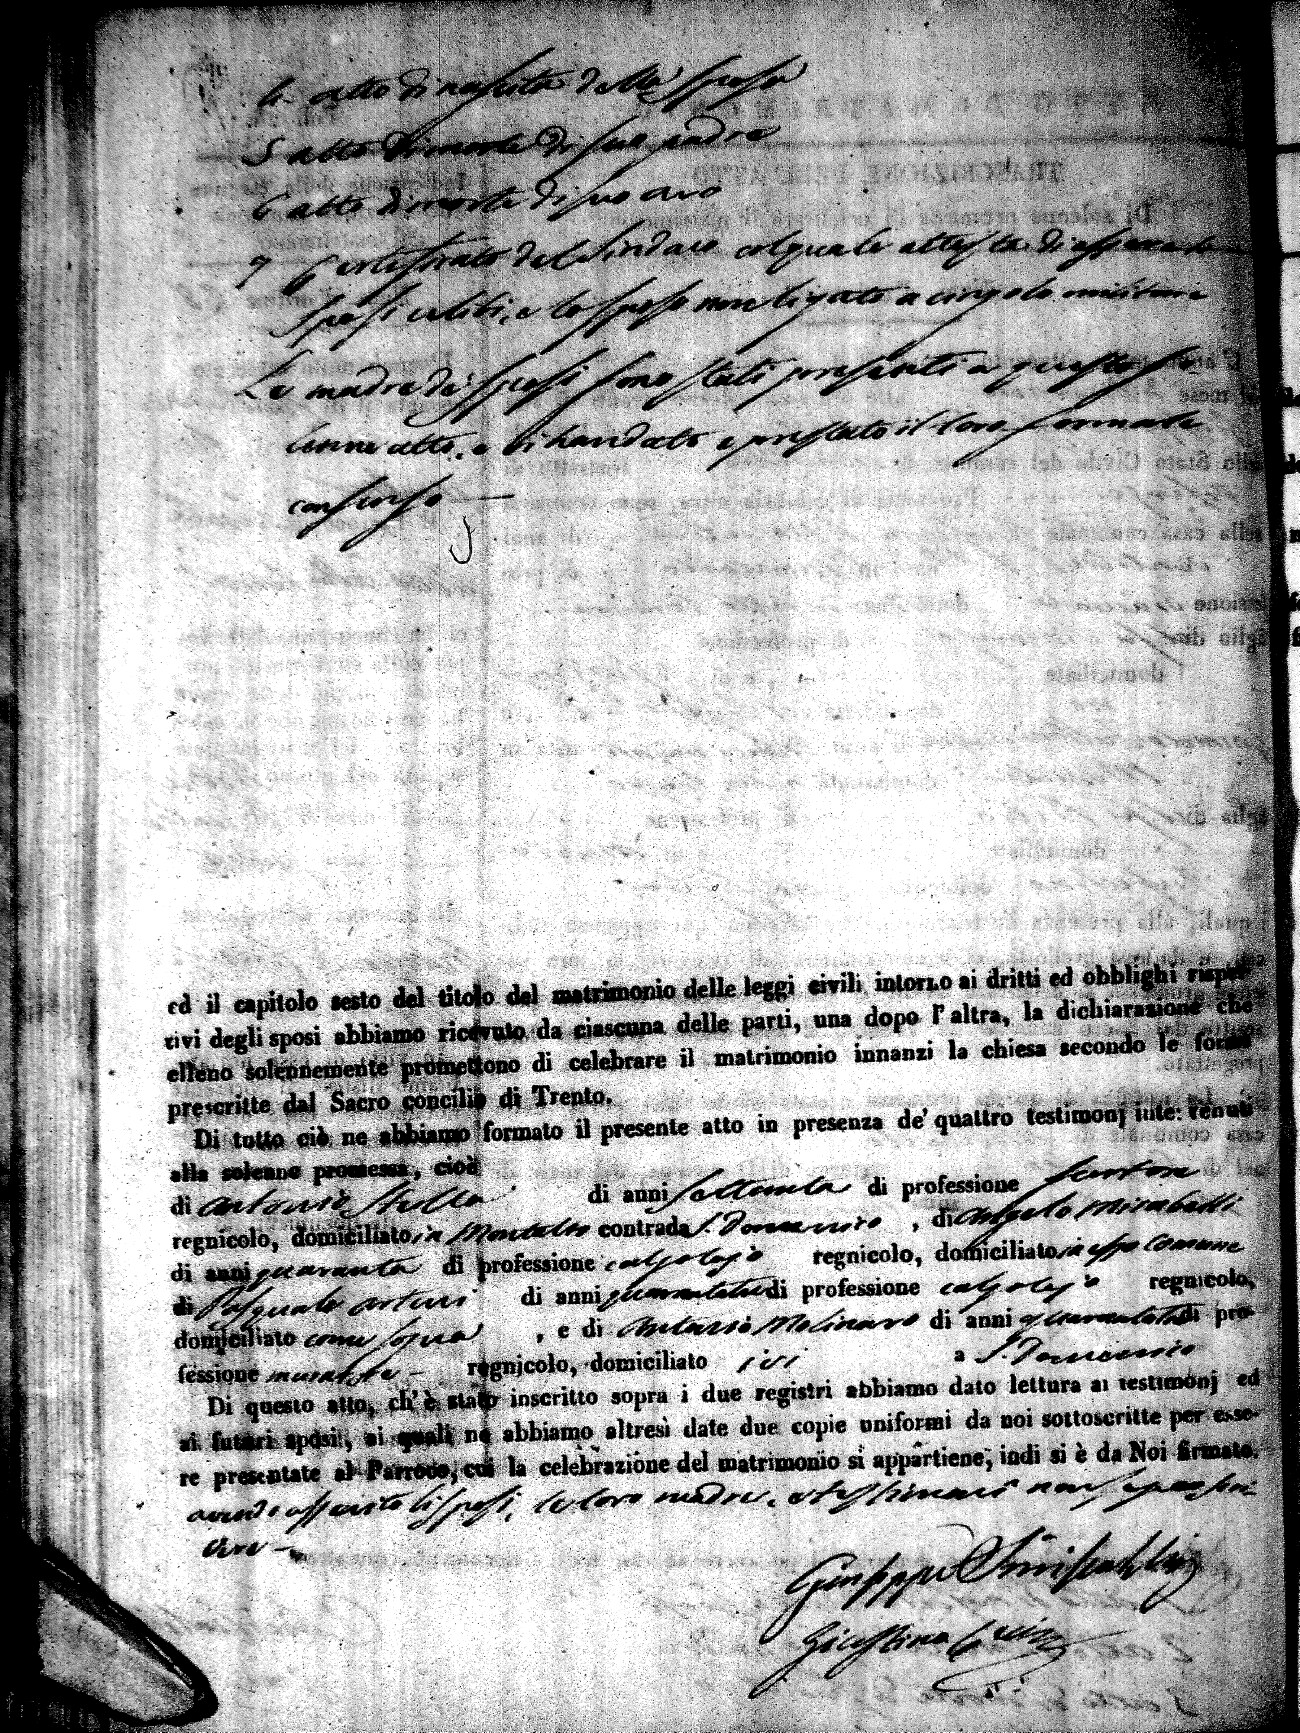 4. atto di nascita della sposa
5 atto di morte di suo padre
6 atto di morte di suo avo
7 Certificato del Sindaco col quale attesta di essere li
sposi celibi, e lo sposo non ligato a cingolo militare
Le madre de' sposi sono stati presenti a questo so
lenne atto, e di handato e prestato il loro formale
consenso
ed il capitolo sesto del titolo del matrimonio delle leggi civili intorno ai dritti ed obblighi rispet
tivi degli sposi abbiamo ricevuto da ciascuna delle parti, una dopo l'altra, la dichiarazione che
elleno solennemente promettono di celebrare il matrimonio innanzi la chiesa secondo le forme
prescritte dal Sacro concilio di Trento.
Di tutto ciò ne abbiamo formato il presente atto in presenza de' quattro testimonj intervenuti
alla solenne promessa, cioè
di Antonio Stella di anni settanta di professione sartore
regnicolo, domiciliato in Montalto contrada S. Domenico , di Angelo Mirabelli
di anni quaranta di professione calzolajo regnicolo, domiciliato in esso Comune
di Pasquale Arturi di anni di professione calzolajo regnicolo,
domiciliato come sopra , e di Antonio Molinaro di anni di pro-
fessione regnicolo, domiciliato ivi a S. Domenico
Di questo atto, ch'è stato inscritto sopra i due registri abbiamo dato lettura ai testimonj ed
ai futuri sposi, ai quali ne abbiamo altresì date due copie uniformi da noi sottoscritte per esse-
re presentate al Parroco, cui la celebrazione del matrimonio si appartiene, indi si è da Noi firmato.
avendo asserito li sposi, le loro madre, e testimonj non saper scri
vere
Giuseppe
Giacostino